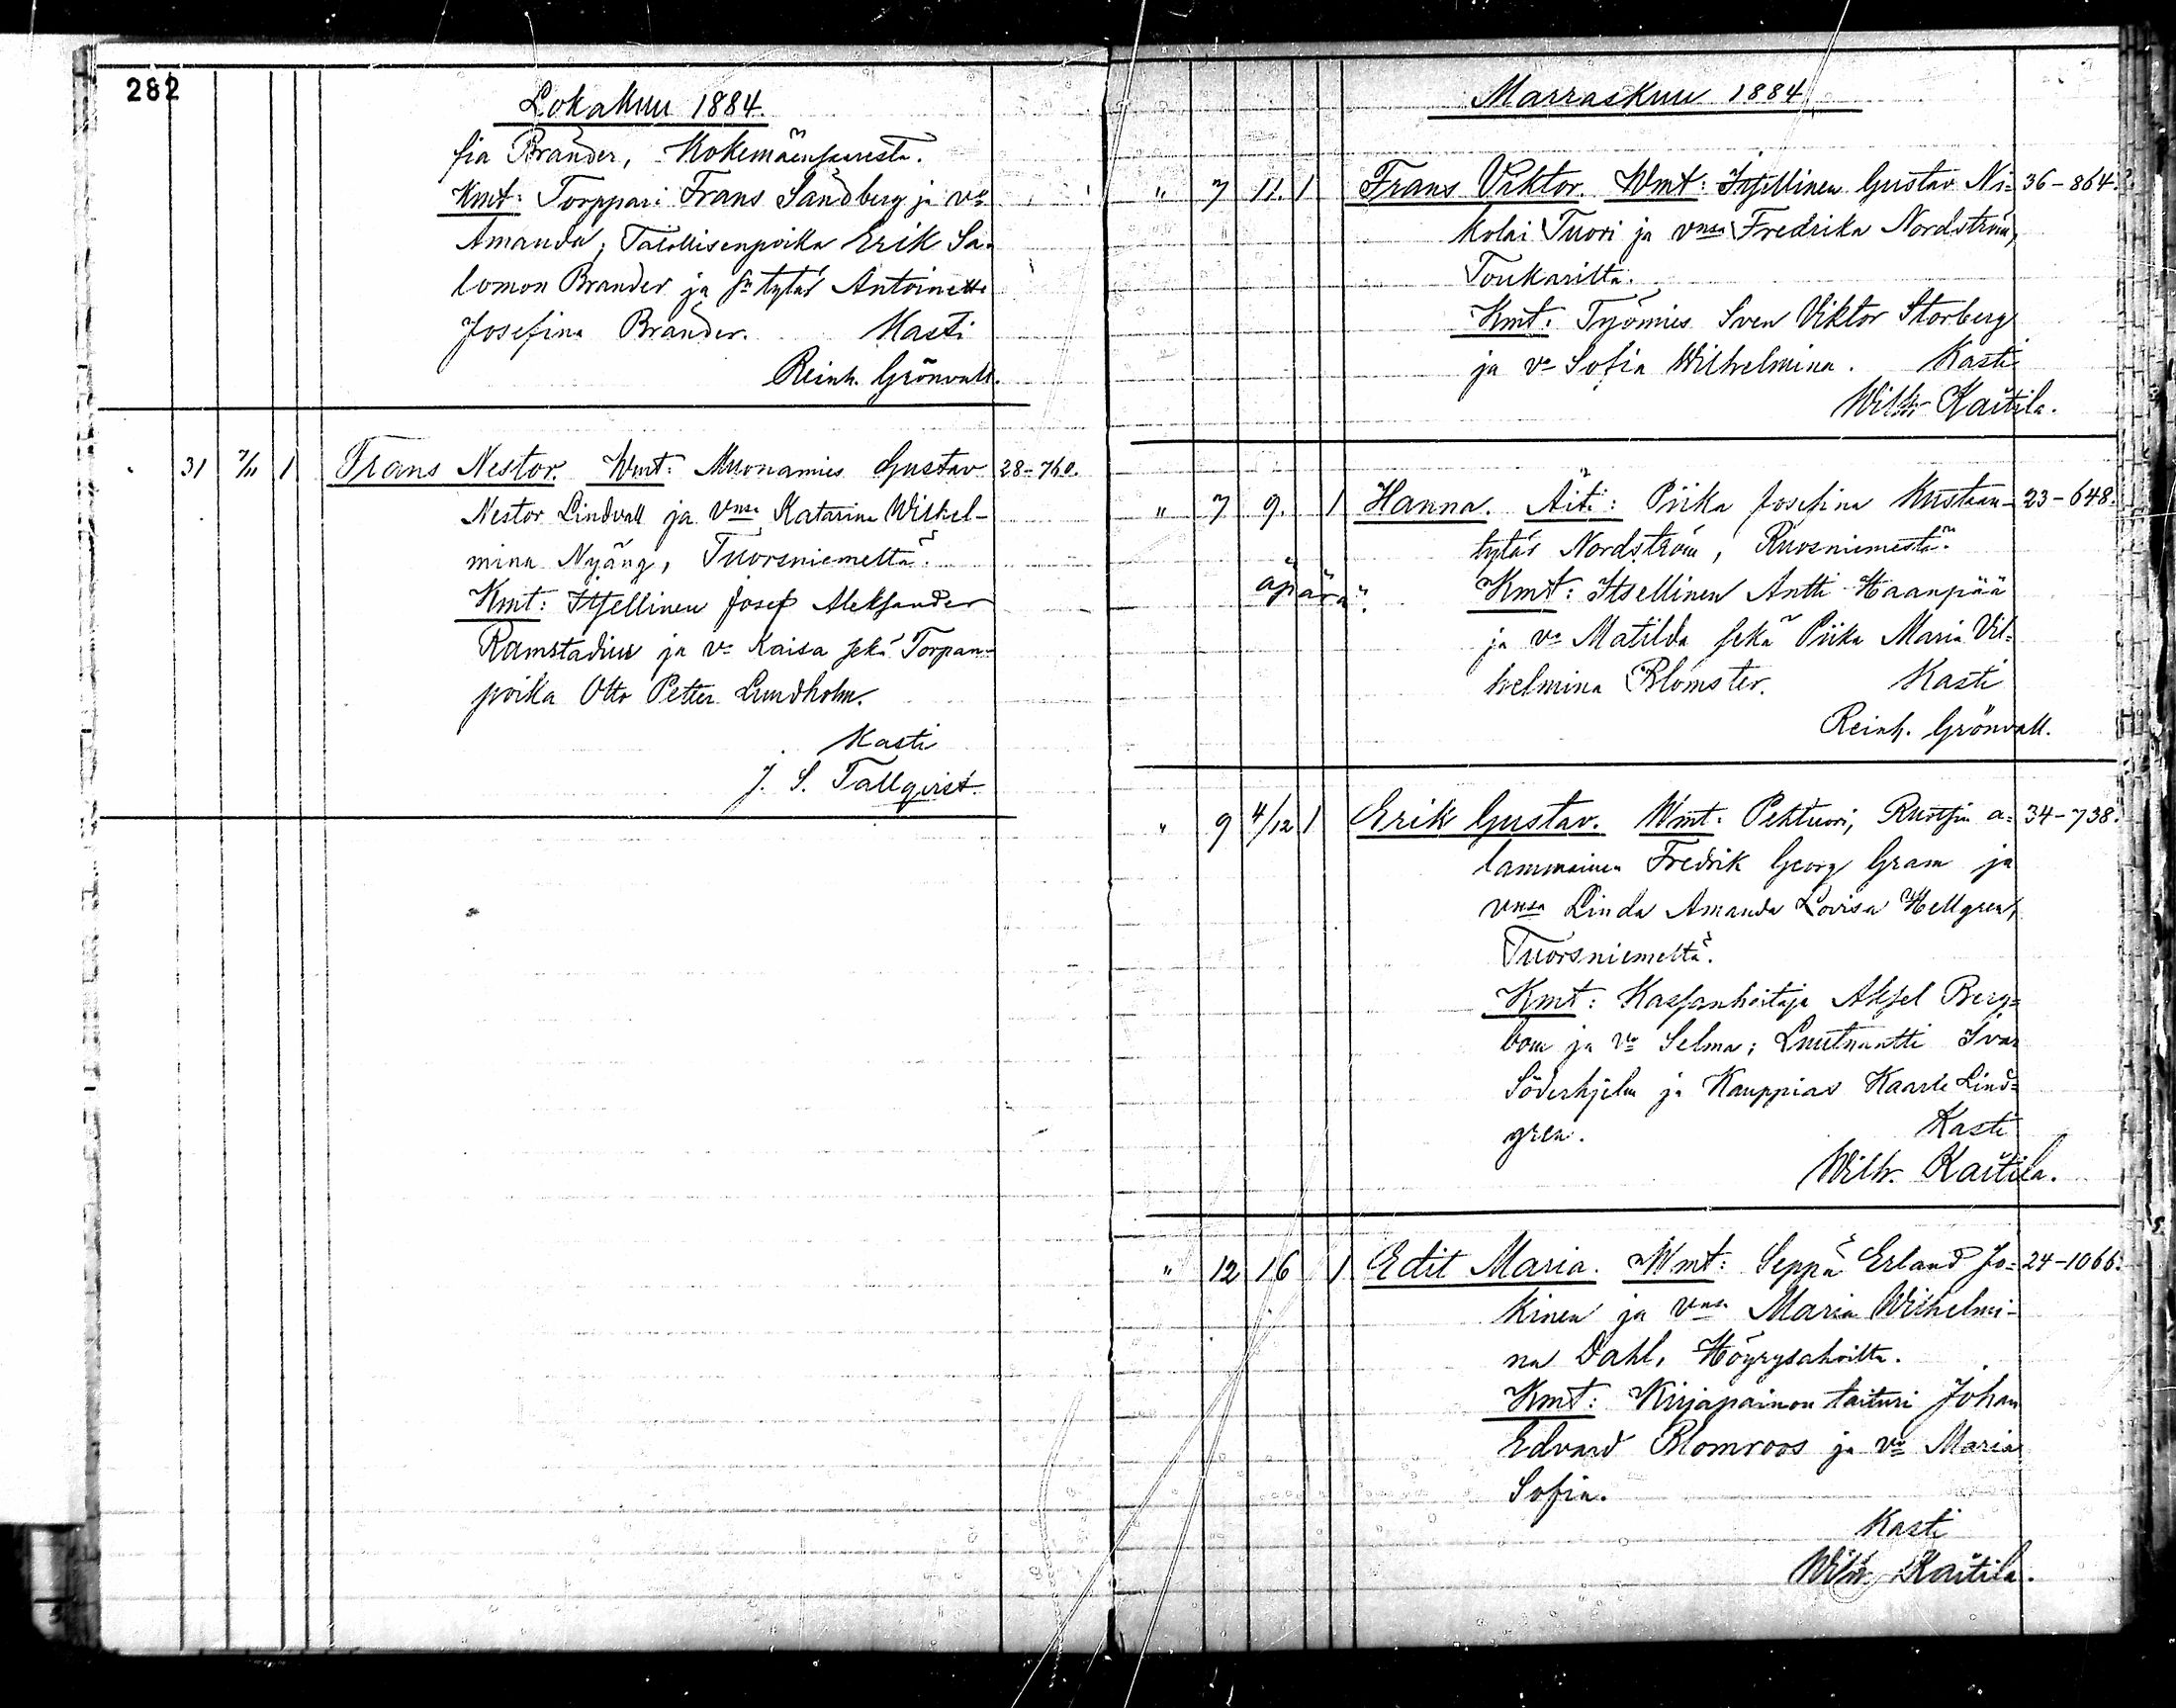 282
Lokakuu 1884.
fia Brander, Kokemäensaaresta.
Kmt: Torppari Frans Sandberg ja vo
Amanda; Talollisenpoika Erik Sa-
lomon Brander ja sn tytär Antoinette
Josefina Brander. Kasti
Reinh. Grönvall.
" 31 7/11 1 Frans Nestor. Wmt: Muonamies Gustav 28-760.
Nestor Lindvall ja vnsa Katarina Wilhel-
mina Nyäng, Tuorsniemeltä.
Kmt: Itsellinen Josef Aleksander
Ramstadius ja vo Kaisa sekä Torpan-
poika Otto Petter Lundholm.
Kasti
J. S. Tallqvist.
Marraskuu 1884
" 7 11. 1 Frans Viktor. Wmt: Itsellinen Gustav Ni= 36-864.
kolai Tuori ja vnsa Fredrika Nordström,
Toukarilta.
Kmt: Työmies Sven Viktor Storberg
ja vo Sofia Wilhelmina. Kasti
Wilh. Kaitila.
" 7 9. 1 Hanna. Äiti: Piika Josefina Kustaan- 23-648.
tytär Nordström, Ruosniemestä.
äpärä. Kmt: Itsellinen Antti Haanpää
ja vo Matilda sekä Piika Maria Vil=
helmina Blomster. Kasti
Reinh. Grönvall.
" 9 4/12 1 Erik Gustav. Wmt: Pehtuori, Ruotsin a= 34-738.
lammainen Fredrik Georg Gram ja
vnsa Linda Amanda Lovisa Hellgren,
Tuorsniemeltä.
Kmt: Kassanhoitaja Aksel Berg=
bom ja vo Selma; Luutnantti Ivar
Söderhjelm ja Kauppias Kaarle Lind=
gren. Kasti
Wilh. Kaitila.
" 12 16 1 Edit Maria. Wmt: Seppä Erland Jo= 24-1066.
kinen ja vnsa Maria Wilhelmi-
na Dahl, Höyrysahoilta.
Kmt: Kirjapainon taituri Johan
Edvard Blomroos ja vo Maria
Sofia.
Kasti
Wilh. Kaitila.